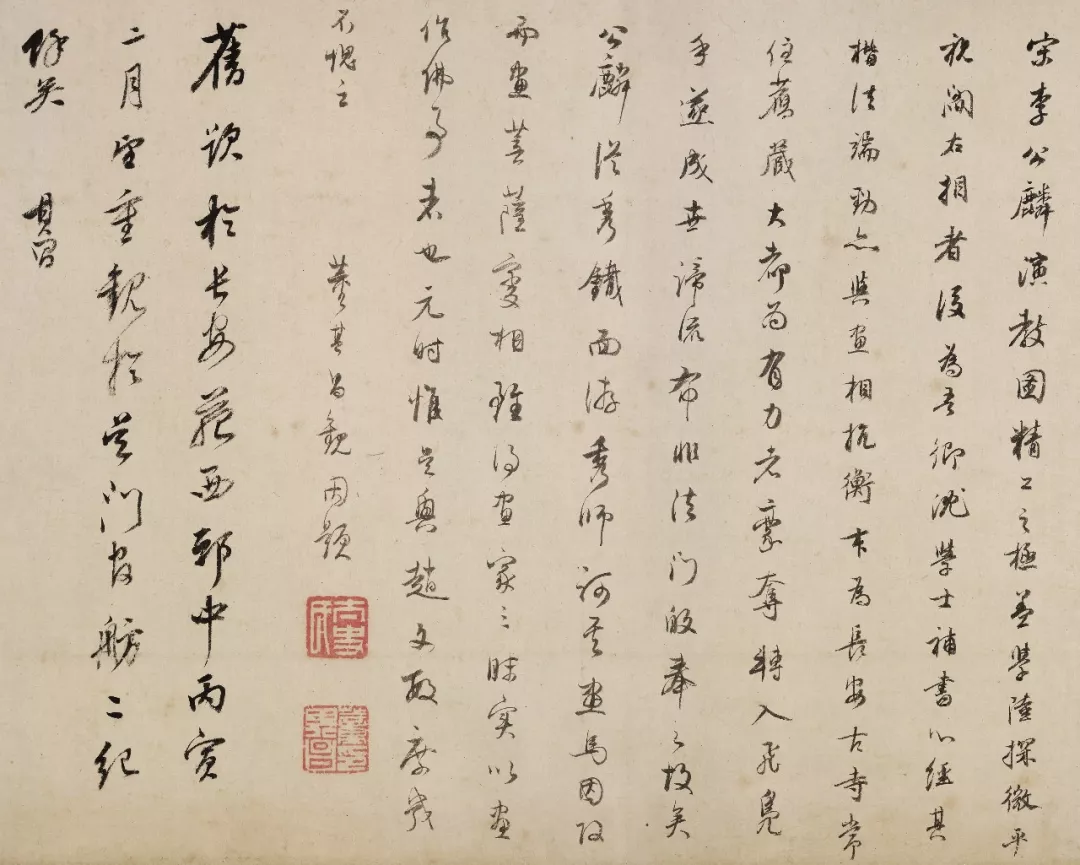 宋李公麟演教圖精工之極蓋學陸探微平
視閻右相者後為吾鄉沈學士補書心經其
楷法端勁亦與畫相抗衡本為長安古寺常
住舊藏大都為有力者豪奪轉入飛鳧
手遂成世諦流布非法門皈奉之故矣
公麟從秀鐵面游秀師訶其畫馬因改
而畫菩薩變相雖得畫家三昧實以畫
作佛事者也元時惟吳興趙文敏庶幾
不愧之
董其昌觀因題
舊題於長安苑西邸中丙寅
二月望重觀於吳門官舫二紀
餘矣 其昌